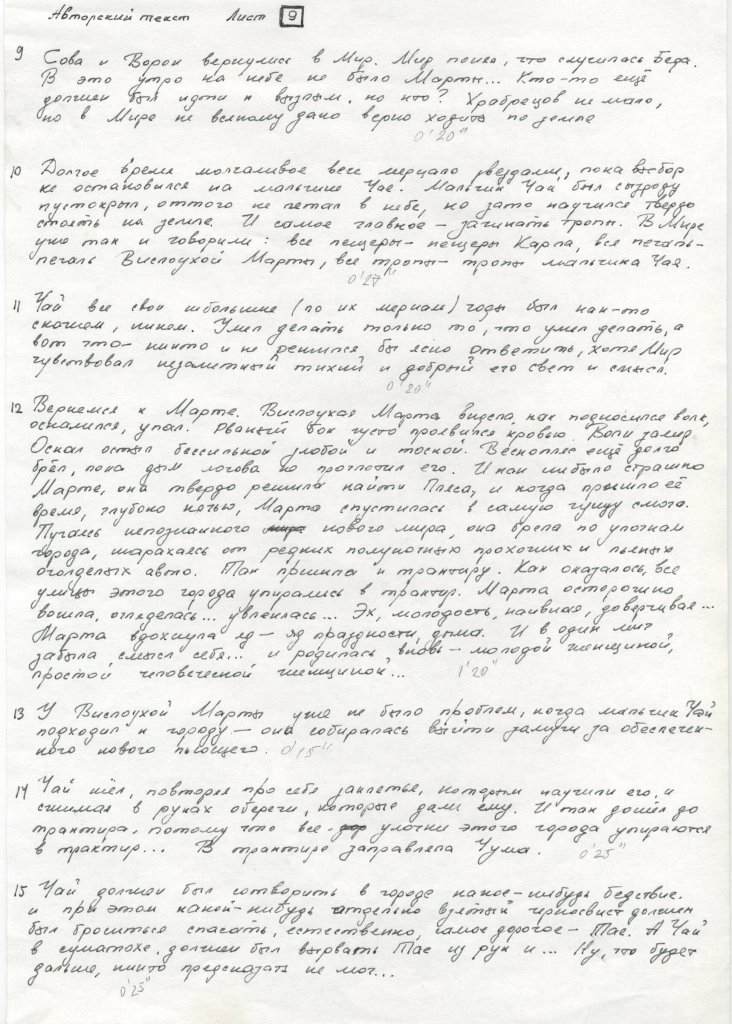 Авторский текст Лист 9
9 Сова и Ворон вернулись в Мир. Мир понял, что случилась Беда.
В это утро на небе не было Марты... Кто-то ещё
должен был идти к вызлым, но кто? Храбрецов не мало,
но в Мире не всякому дано верно ходить по земле
0'20"
10 Долгое время молчаливое вече мерцало звёздами, пока выбор
не остановился на мальчике Чае. Мальчик Чай был сызроду
пустокрыл, оттого не летал в небе, но зато научился твёрдо
стоять на земле. И самое главное – зачинать тропы. В Мире
уже так и говорили: все пещеры – пещеры Карпа, все печаль –
печаль Вислоухой Марты, все тропы – тропы мальчика Чая.
0'27"
11 Чай все свои небольшие (по их меркам) годы был как-то
скочком, никем. Умел делать только то, что умел делать, а
вот что – никто и не решился бы ясно ответить, хотя Мир
чувствовал незаметный тихий и добрый его свет и смысл.
0'20"
12 Вернемся к Марте. Вислоухая Марта видела, как подкосился волк,
оскалился, упал. Рваный бок густо проявился кровью. Вопль замер
Оскал остыл бессильной злобой и тоской. Веснопляс ещё долго
брёл, пока дым логова не проглотил его. И как ни было страшно
Марте, она твердо решила найти Пляса, и когда пришло её
время, глубокой ночью, Марта спустилась в самую гущу смога.
Пугаясь непознанного нового мира, она брела по улочкам
города, шарахаясь от редких полуночных прохожих и пьяных
оголделых авто. Так пришла к трактиру. Как оказалось, все
улицы этого города упирались в трактир. Марта осторожно
вошла, огляделась... увлеклась... Эх, молодость, наивная, доверчивая...
Марта вдохнула яд – яд праздности, дыма. И в один миг
забыла смысл себя... и родилась вновь – молодой женщиной,
простой человеческой женщиной... 1'20"
13 У Вислоухой Марты уже не было проблем, когда мальчик Чай
подходил к городу – она собиралась выйти замуж за обеспечен-
ного нового пьющего. 0'15"
14 Чай шёл, повторяя про себя заклятье, которым научили его, и
сжимая в руках обереги, которые дали ему. И так дошёл до
трактира, потому что все улочки этого города упираются
в трактир... В трактире заправляла Чума. 0'25"
15 Чай должен был сотворить в городе какое-нибудь бедствие.
и при этом какой-нибудь отдельно взятый черносвист должен
был броситься спасать, естественно, самое дорогое – Тае. А Чай
в суматохе, должен был вырвать Тае из рук и... Ну, что будет
дальше, никто предсказать не мог...
0'25"